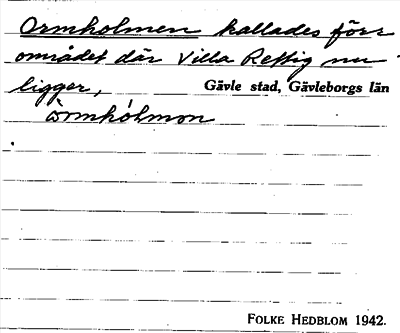 Ormholmen kallades förr
området där Villa Rettig nu
ligger, Gävle stad, Gävleborgs län
Örmhólmon
FOLKE HEDBLOM 1942.